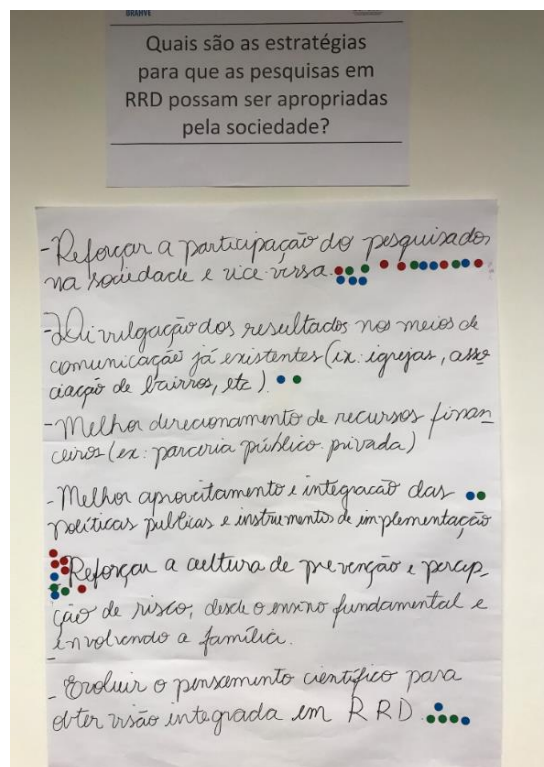 Quais são as estratégias
para que as pesquisas em
RRD possam ser apropriadas
pela sociedade?
- Reforçar a participação do pesquisador
na sociedade e vice-versa.
- Divulgação dos resultados nos meios de
comunicação já existentes (ex: igrejas, asso
ciação de bairros, etc).
- Melhor direcionamento de recursos finan
ceiros (ex: parceria público-privada)
- Melhor aproveitamento e integração das
políticas publicas e instrumentos de implementação
Reforçar a cultura de prevenção e percep_
ção de risco, desde o ensino fundamental e
envolvendo a família.
-
- Evoluir o pensamento científico para
obter visão integrada em RRD.